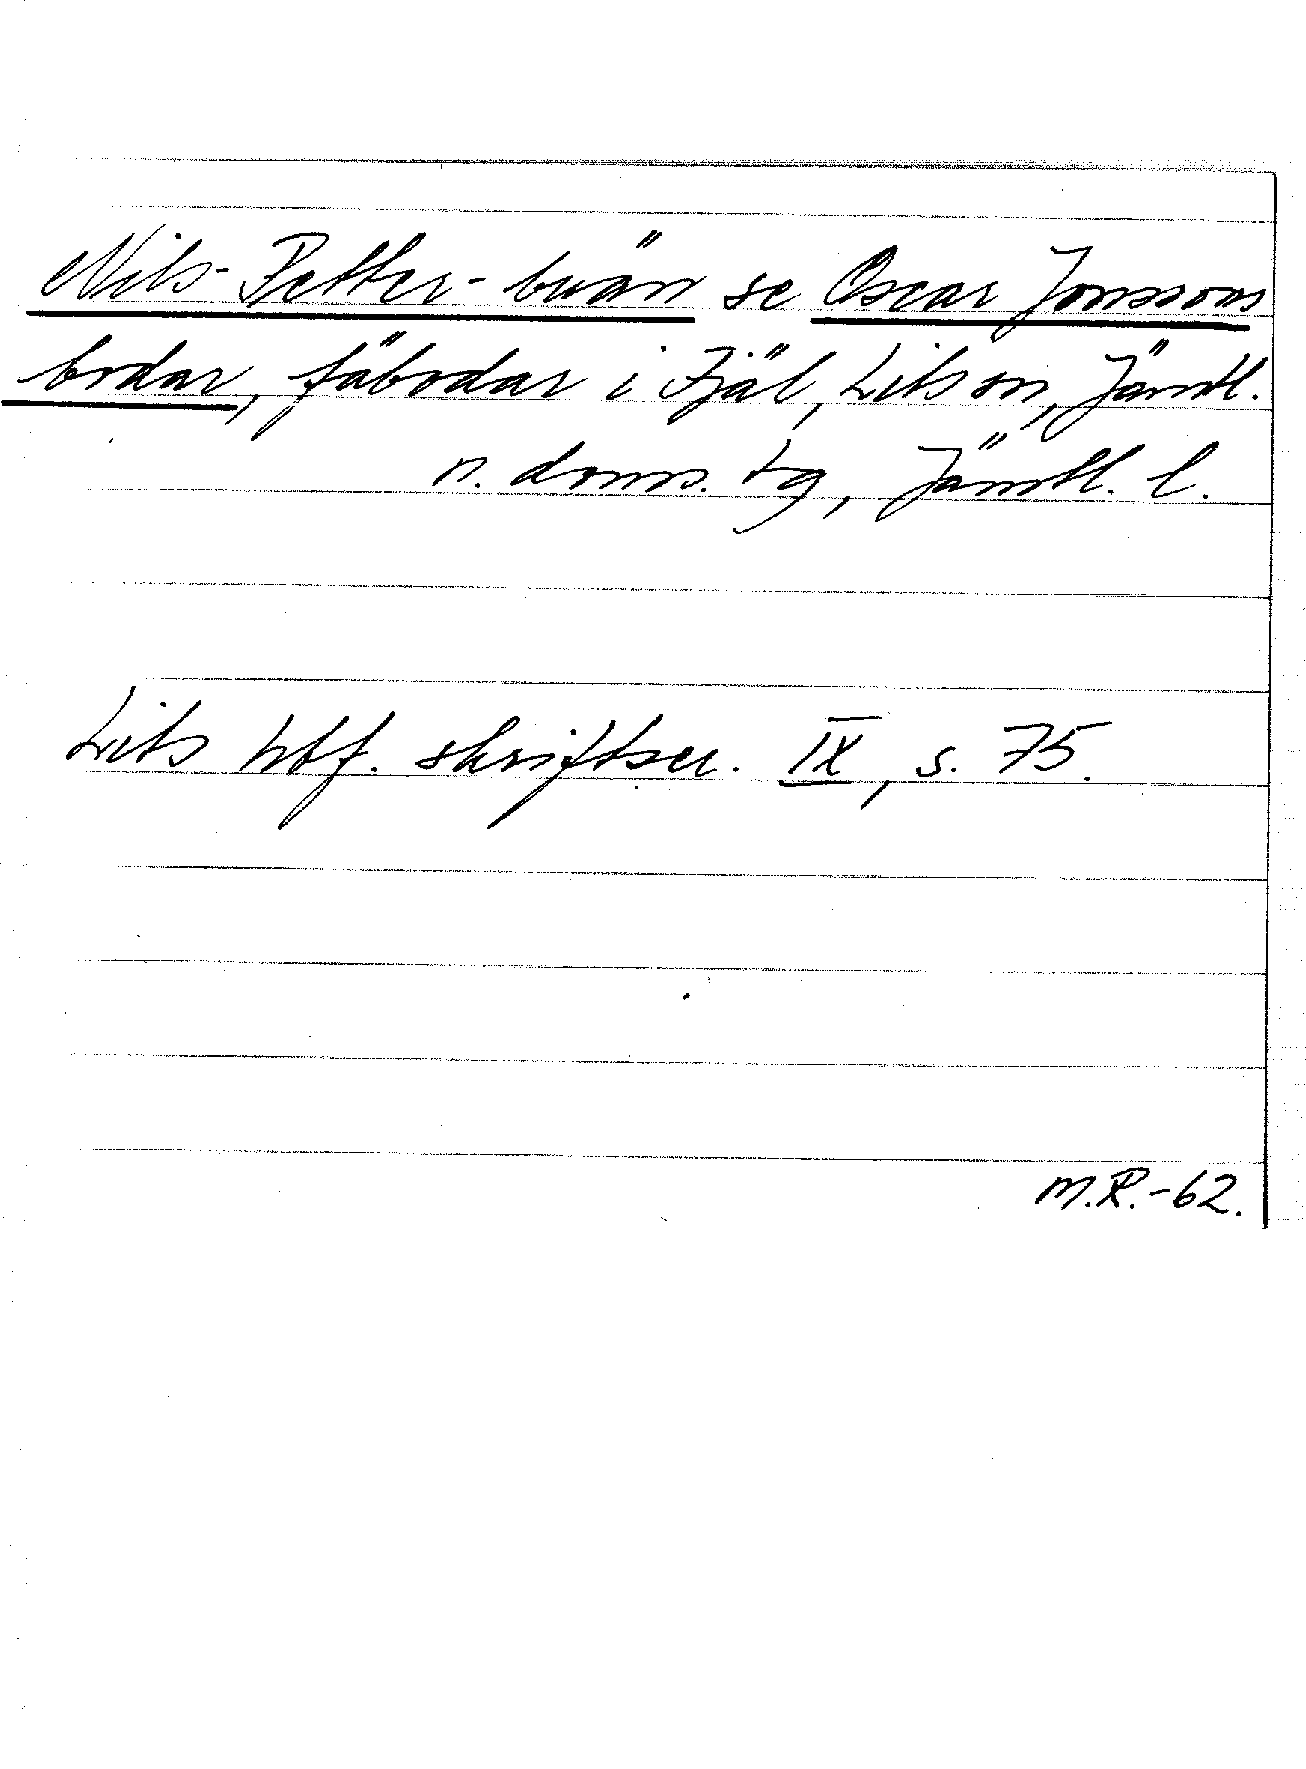 Nils-Petter-buän se Oscar Jonssons
bodar, fäbodar i Fjäl, Lits sn, Jämtl.
n. doms. tg, Jämtl. l.
Lits hbf. skriftser. IX, s. 75.
M.R.-62.